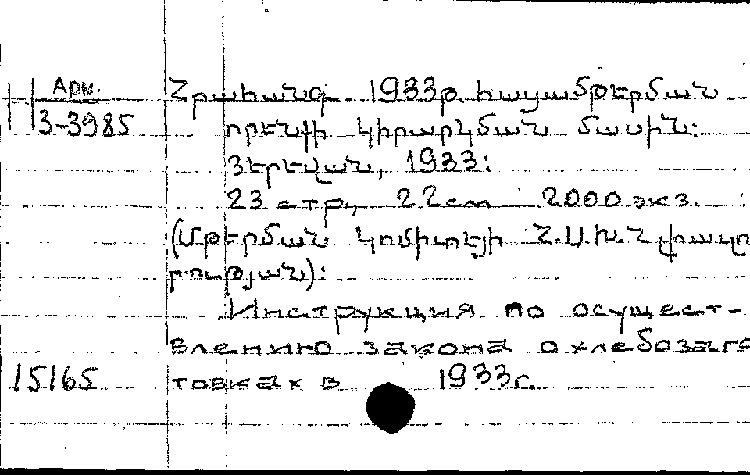 Арм.
3-3985
Հրահանգ 1933թ. հացամթերման
որենքի կիրարկման մասին:
Յերեվան, 1933:
23 стр., 22 см 2000 экз.
(Մթերման կոմիտեյի Հ.Ս.Խ.Հ լիազո
րության):
Инструкция по осущест-
влению закона о хлебозаго
15165 товках в 1933г.